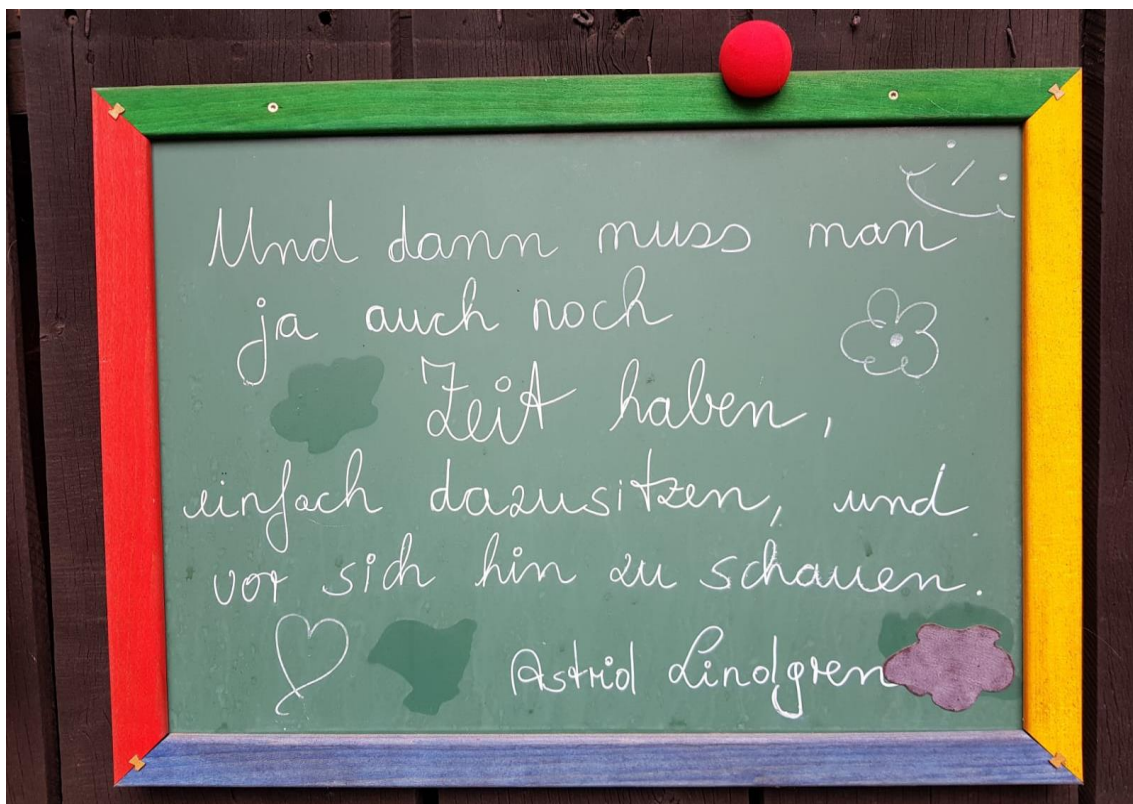 Und dann muss man
ja auch noch
Zeit haben,
einfach dazusitzen, und
vor sich hin zu schauen.
Astrid Lindgren